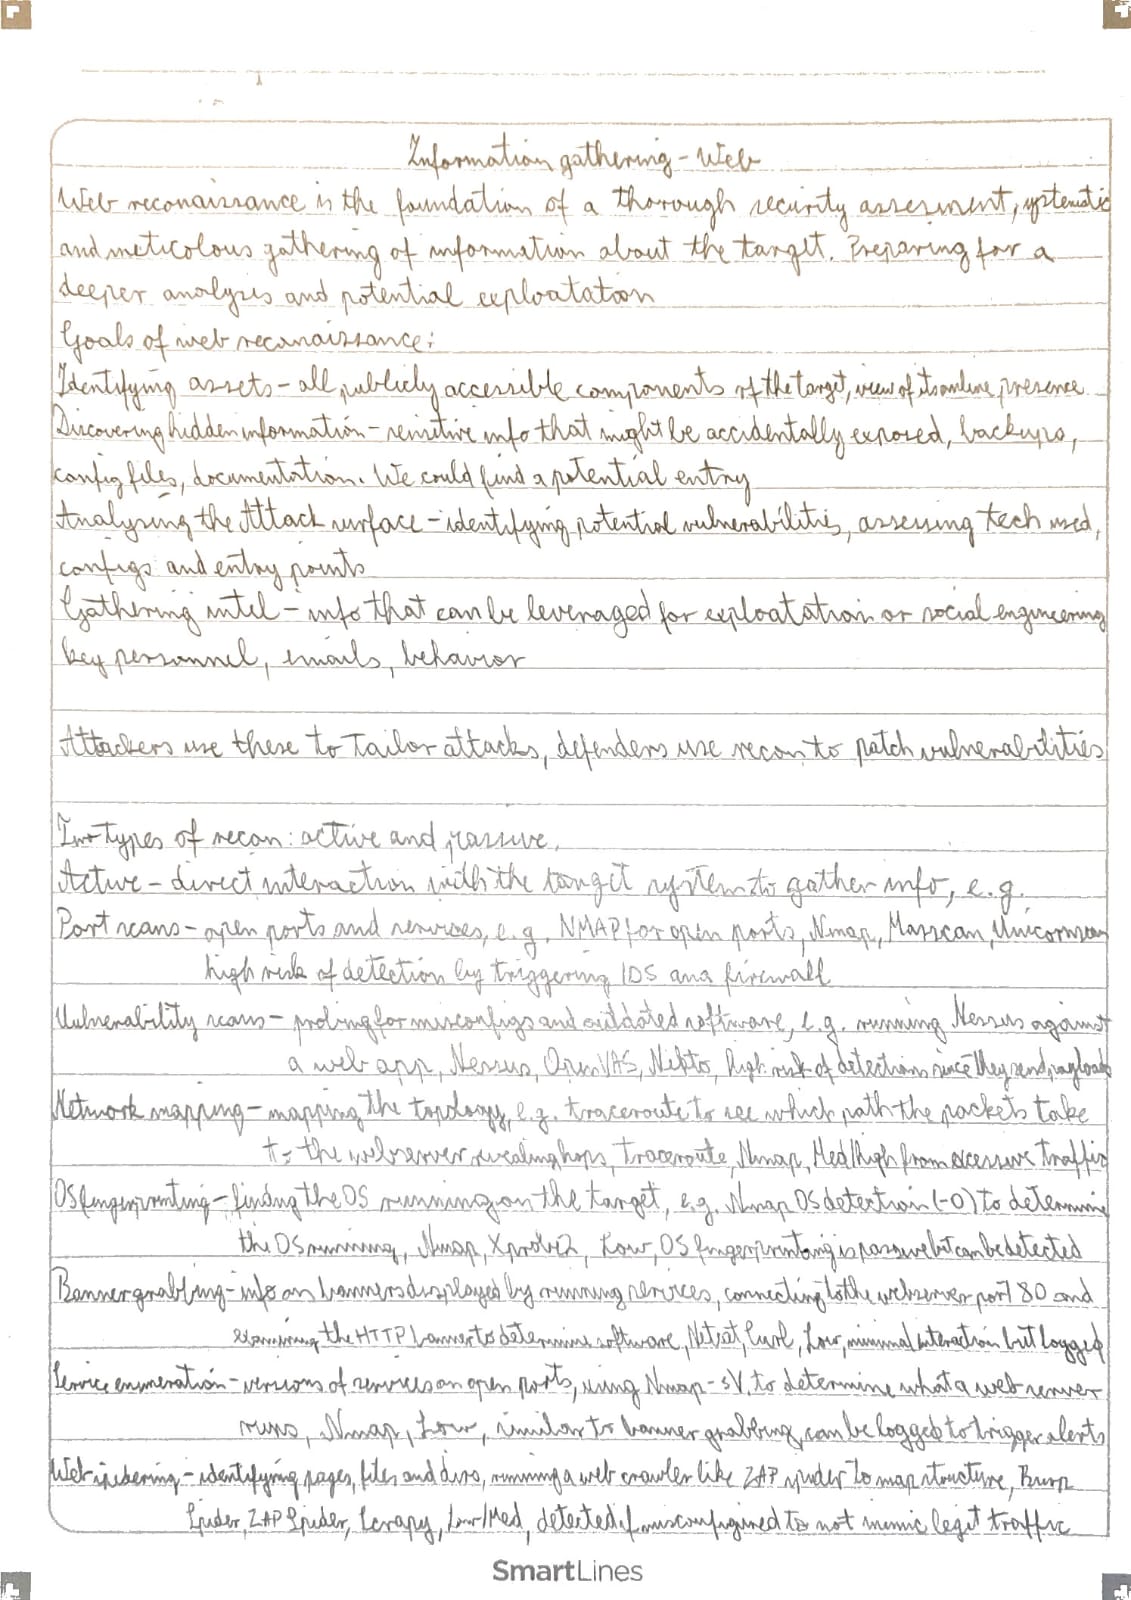 Information gathering - Web
Web reconaissance is the foundation of a thorough security assesment, systematic
and meticolous gathering of information about the target. Preparing for a
deeper analysis and potential exploatation
Goals of web reconaissance:
Identifying assets - all publicly accessible components of the target, view of its online presence
Discovering hidden information - sensitive info that might be accidentally exposed, backups,
config files, documentation. We could find a potential entry
Analysing the Attack surface - identifying potential vulnerabilities, assessing tech used,
configs and entry points
Gathering intel - info that can be leveraged for exploatation or social engineering
key personnel, emails, behavior
Attackers use these to Tailor attacks, defenders use recon to patch vulnerabilities
Two types of recon: active and passive.
Active - direct interaction with the target system to gather info, e.g.
Port scans - open ports and services, e.g. NMAP for open ports, Nmap, Masscan, Unicornscan
high risk of detection by triggering IDS and firewall
Vulnerability scans - probing for misconfigs and outdated software, e.g. running Nessus against
a web app, Nessus, OpenVAS, Nikto, high risk of detection since they send payloads
Network mapping - mapping the topology, e.g. traceroute to see which path the packets take
to the webserver revealing hops, traceroute, Nmap, Med/High from excessive traffic
OS fingerprinting - finding the OS running on the target, e.g. Nmap OS detection (-O) to determine
the OS running, Nmap, Xprobe2, Low, OS fingerprinting is passive but can be detected
Banner grabbing - info on banners displayed by running services, connecting to the webserver port 80 and
examining the HTTP banner to determine software, Netcat, Curl, Low, minimal interaction but logged
Service enumeration - versions of services on open ports, using Nmap -sV, to determine what a web server
runs, Nmap, Low, similar to banner grabbing, can be logged to trigger alerts
Web spidering - identifying pages, files and dirs, running a web crawler like ZAP spider to map structure, Burp
Spider, ZAP Spider, Scrapy, Low/Med, detected if misconfigured to not mimic legit traffic
SmartLines